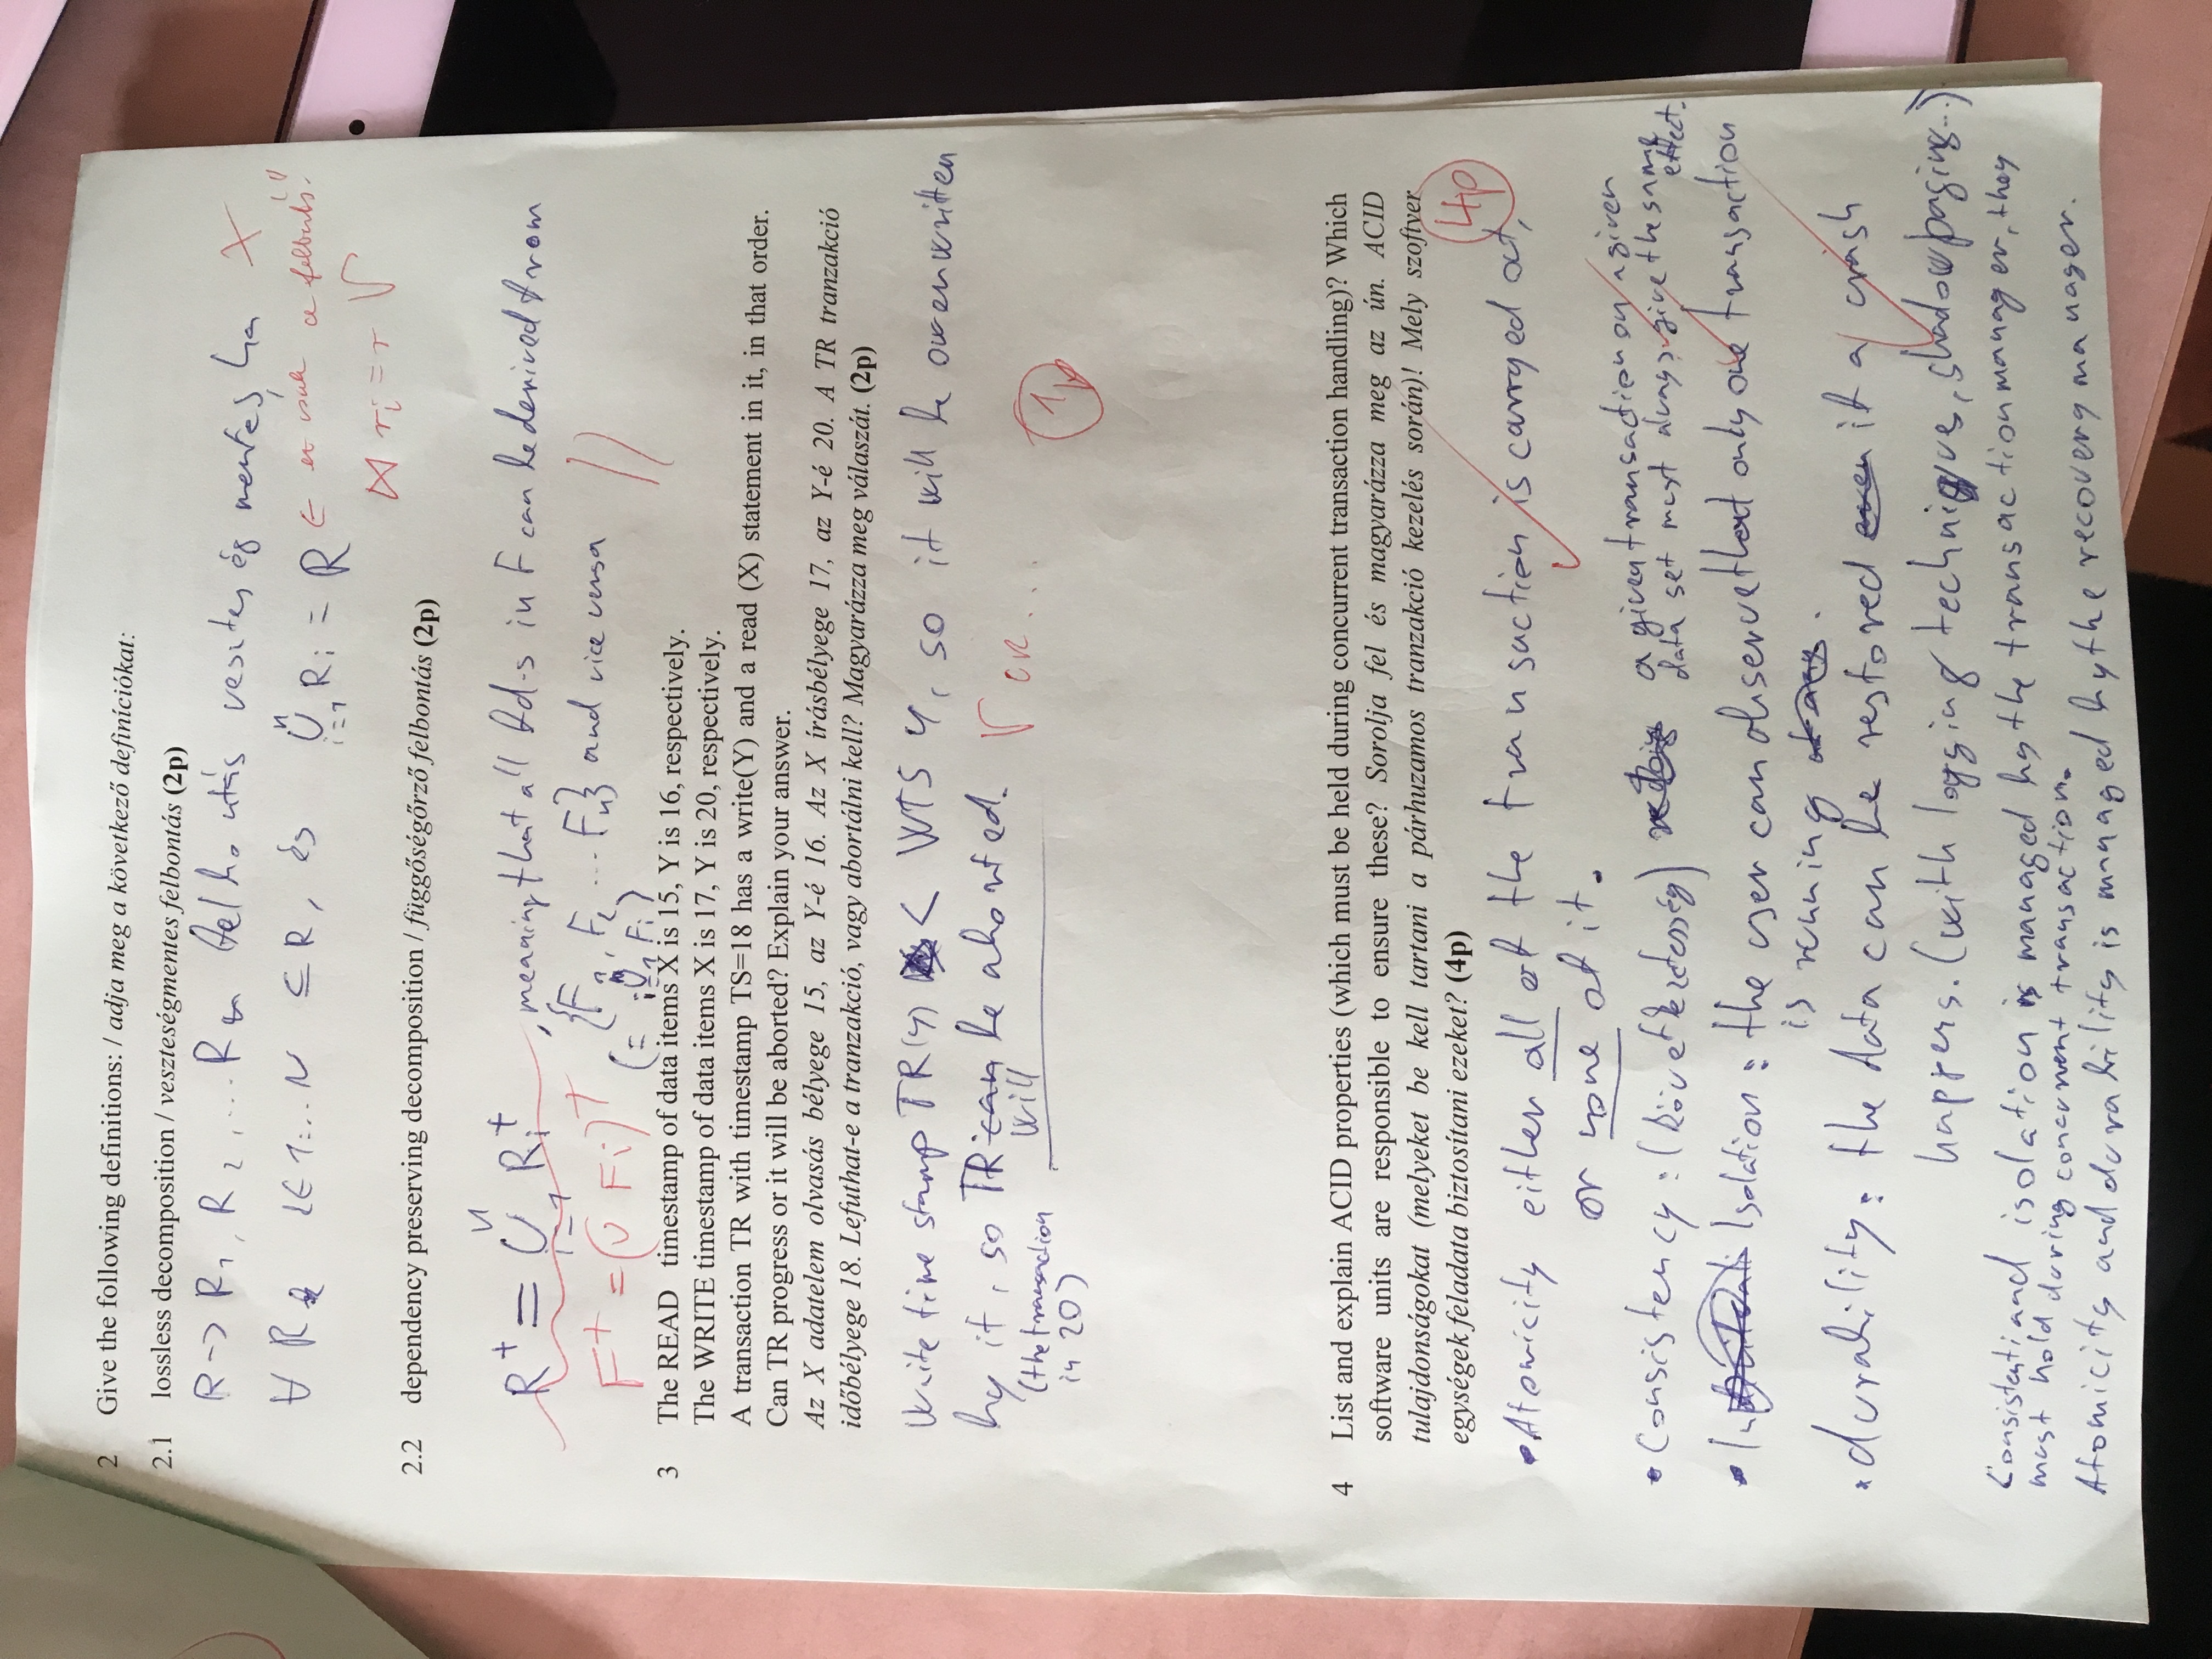 2 Give the following definitions: / adja meg a következő definíciókat:
2.1 lossless decomposition / veszteségmentes felbontás (2p)
R -> R1, R2, ... Rn felbontás vesztes ég mentes, ha X
∀ Ri i∈1...N ⊆ R, és n ∪ i=1 Ri = R ← ez csak a felbontás!
⋈ ri = r √
2.2 dependency preserving decomposition / függőségőrző felbontás (2p)
R+ = n ∪ i=1 Ri+, meaning that all fd-s in F can be derived from
{F1, F2 ... Fn} and vice versa
(= n ∪ i=1 Fi)
F+ = (∪ Fi)+
3 The READ timestamp of data items X is 15, Y is 16, respectively.
The WRITE timestamp of data items X is 17, Y is 20, respectively.
A transaction TR with timestamp TS=18 has a write(Y) and a read (X) statement in it, in that order.
Can TR progress or it will be aborted? Explain your answer.
Az X adatelem olvasás bélyege 15, az Y-é 16. Az X írásbélyege 17, az Y-é 20. A TR tranzakció
időbélyege 18. Lefuthat-e a tranzakció, vagy abortálni kell? Magyarázza meg válaszát. (2p)
Write time stamp TR(y) < WTS y, so it will be overwritten
by it, so TR can will be aborted. √
(the transaction
in 20)
1p
4 List and explain ACID properties (which must be held during concurrent transaction handling)? Which
software units are responsible to ensure these? Sorolja fel és magyarázza meg az ún. ACID
tulajdonságokat (melyeket be kell tartani a párhuzamos tranzakció kezelés során)! Mely szoftver
egységek feladata biztosítani ezeket? (4p)
4p
• Atomicity either all of the transaction is carryed out,
or none of it.
• Consistency: (következetesség) a given transaction on a given
data set must always give the same effect.
• Isolation: the user can observe that only one transaction
is running.
• durability: the data can be restored even if a crash
happens. (with logging techniques, shadow paging...)
Consistenti and isolation is managed by the transaction manager, they
must hold during concurrent transaction.
Atomicity and durability is managed by the recovery manager.